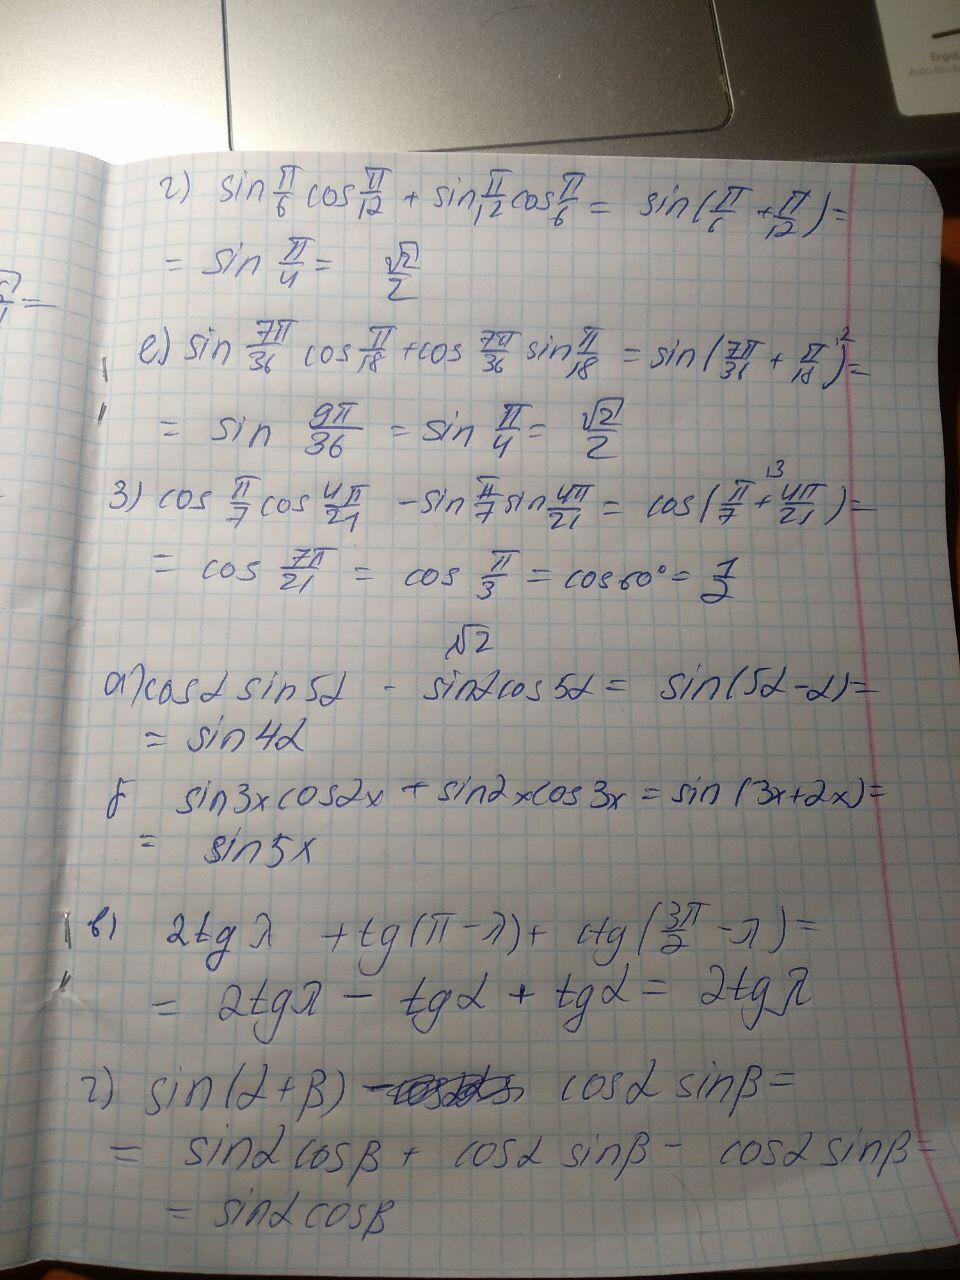 Ergo
Auto-
г) sin π/6 cos π/12 + sin π/12 cos π/6 = sin(π/6 + π/12) =
= sin π/4 = √2/2
е) sin 7π/36 cos π/18 + cos 7π/36 sin π/18 = sin(7π/36 + π/18)^2 =
= sin 9π/36 = sin π/4 = √2/2
з) cos π/7 cos 4π/21 - sin π/7 sin 4π/21 = cos(π/7^3 + 4π/21) =
= cos 7π/21 = cos π/3 = cos 60° = 1/2
√2
а) cosα sin5α - sinα cos5α = sin(5α-α) =
= sin4α
б sin3x cos2x + sin2x cos3x = sin(3x+2x) =
= sin5x
в) 2tgλ + tg(π-λ) + ctg(3π/2 - λ) =
= 2tgλ - tgα + tgα = 2tgλ
г) sin(α+β) - cosα sinβ =
= sinα cosβ + cosα sinβ - cosα sinβ =
= sinα cosβ